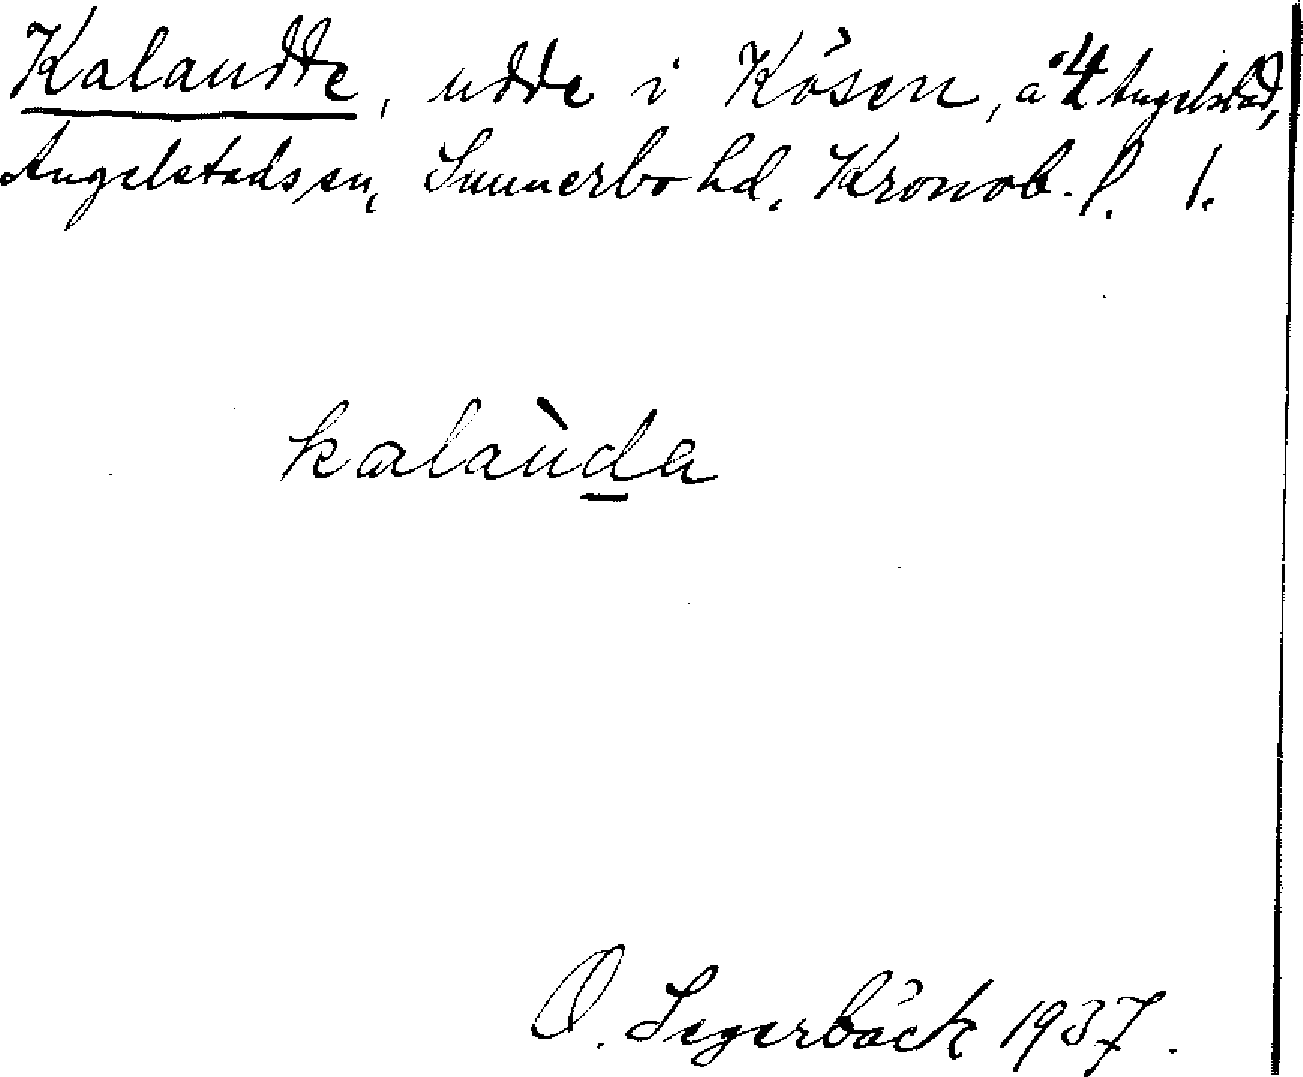 Kalaudde, udde i Kösen, å 4 Angelstad,
Angelstads sn, Sunnerbo hd. Kronob. l. 1.
kalaùda
O. Segerbäck 1937.